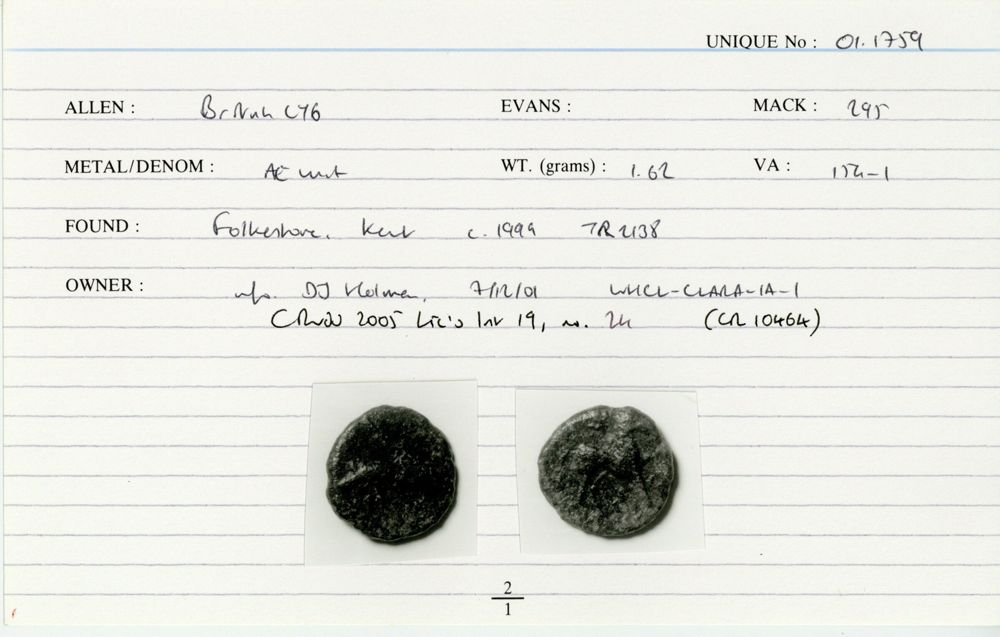 UNIQUE No : 01.1759
ALLEN : British LY6 EVANS : MACK : 295
METAL/DENOM : Æ unit WT. (grams) : 1.62 VA : 154-1
FOUND : Folkestone, Kent c. 1999 TR 2138
OWNER : info. DJ Holman, 7/12/01 WHCL-CLARA-IA-1
2005 Inv 19, no. 24 (CR 10464)
2
1